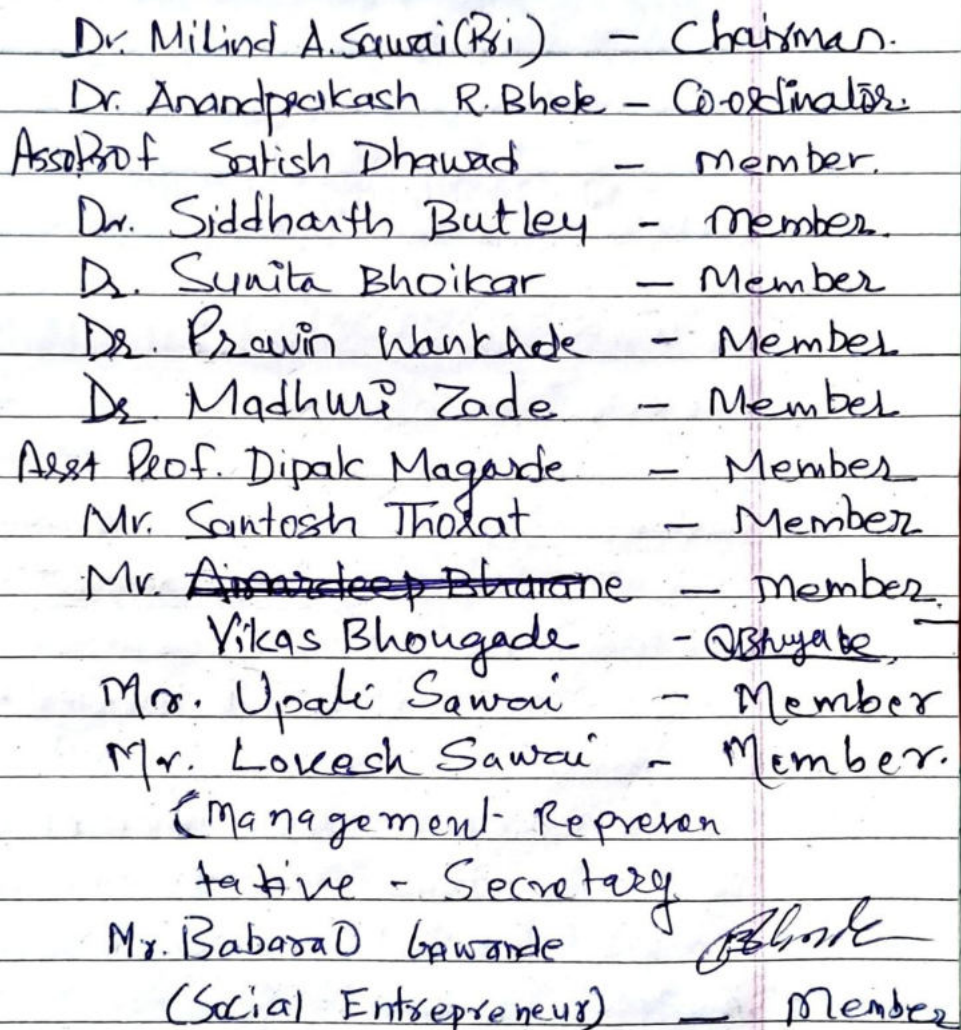 Dr. Milind A. Sawai (Pri) - Chairman.
Dr. Anandprakash R. Bhele - Co-ordinator.
Asso.Prof Satish Dhawad - member.
Dr. Siddharth Butley - member.
Dr. Sunita Bhoikar - Member
Dr. Pravin Wankhde - Member
Dr. Madhuri Zade - Member
Asst Prof. Dipak Magarde - Member
Mr. Santosh Thorat - Member
Mr. Amardeep Bharane - Member.
Vikas Bhougade -
Mr. Upali Sawai - Member
Mr. Lokesh Sawai - Member.
(Management Represen
tative - Secretary
Mr. Babarao Gawande
(Social Entrepreneur) - Member